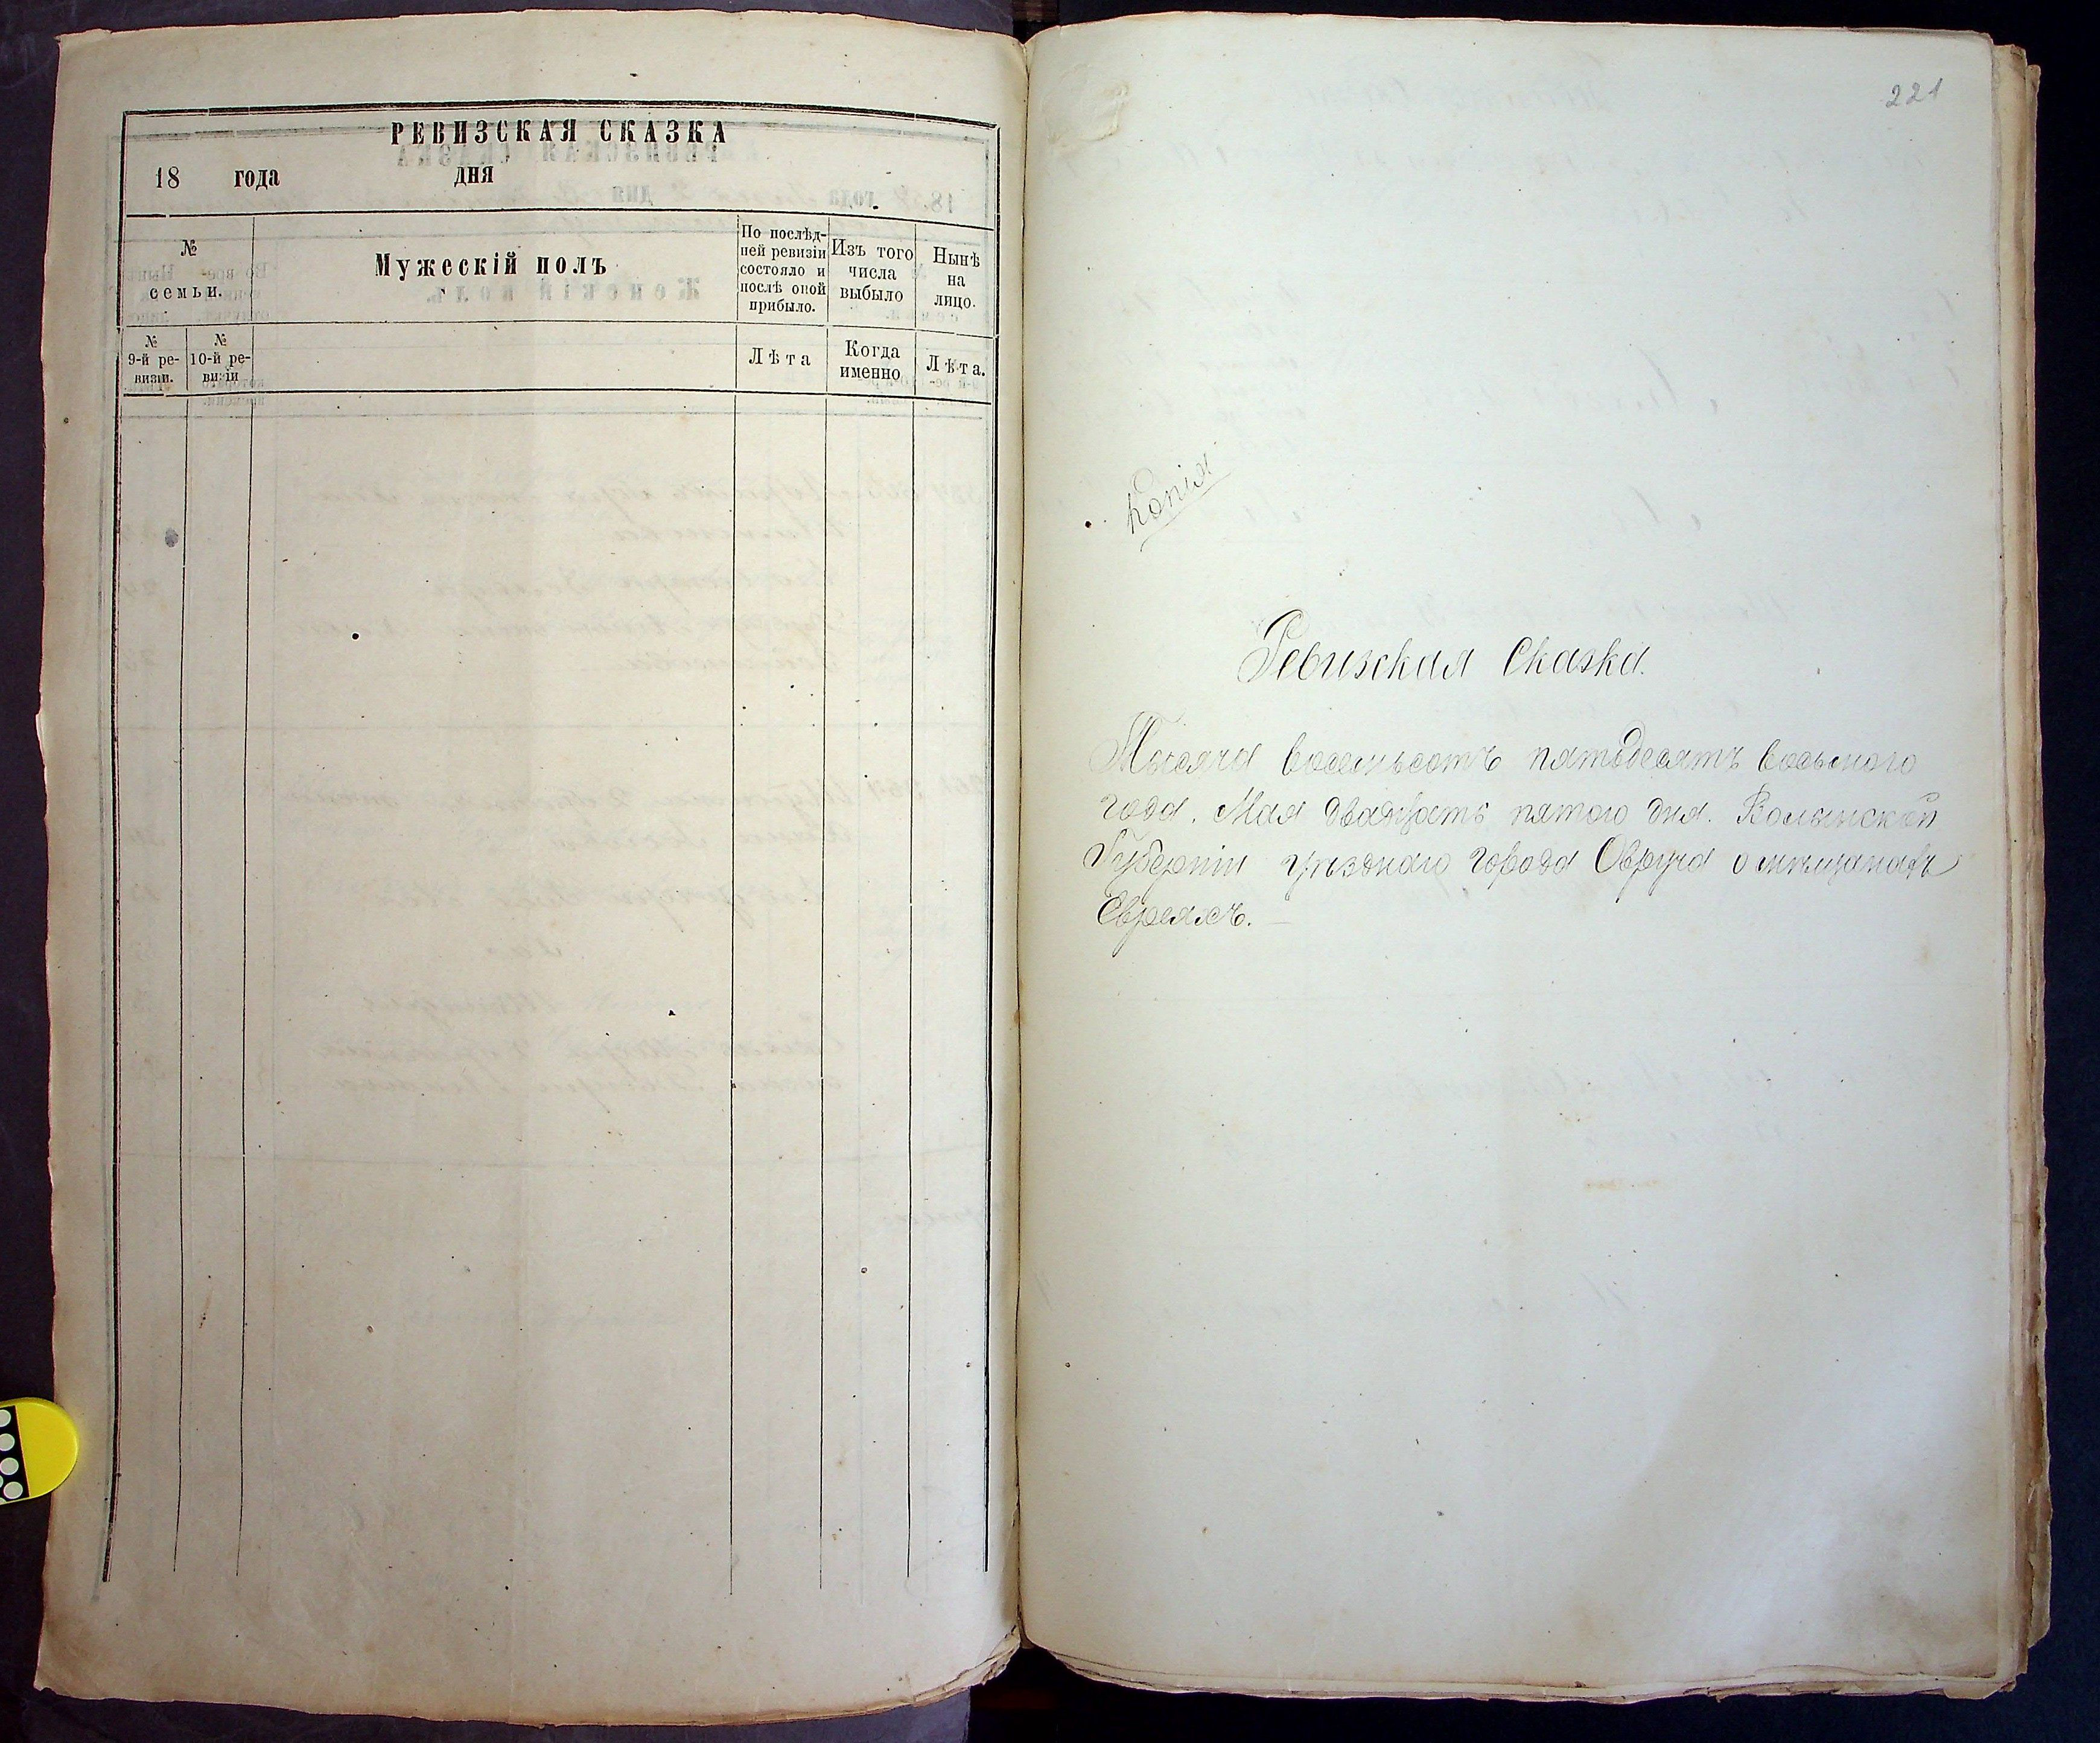 РЕВИЗСКАЯ СКАЗКА
18 года дня
№ семьи.
Мужескій полъ
По послѣд-
ней ревизіи
состояло и
послѣ оной
прибыло.
Изъ того
числа
выбыло
Нынѣ
на
лицо.
№
9-й ре-
визіи.
№
10-й ре-
визіи
Лѣта
Когда
именно
Лѣта.
221
Копія
Ревизская Сказка.
Тысяча восемьсотъ пятьдесятъ восьмого
года. Мая двадцать пятого дня. Волынской
Губерніи уѣзднаго города Овруча о мѣщанахъ
Евреяхъ.